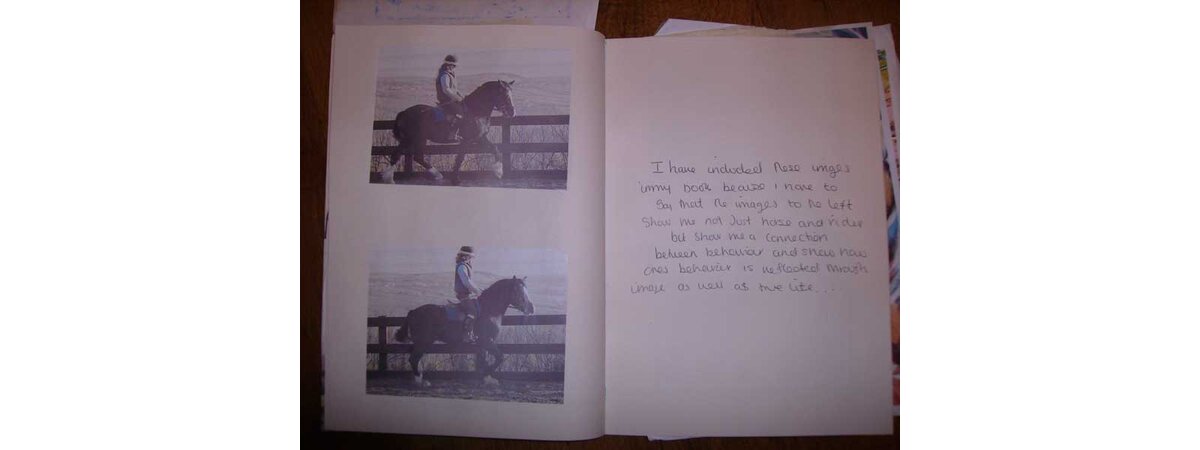 I have included these images
in my book because I have to
say that the images to the left
show me not just horse and rider
but show me a connection
between behaviour and shows how
ones behavior is reflected through
image as well as true life...